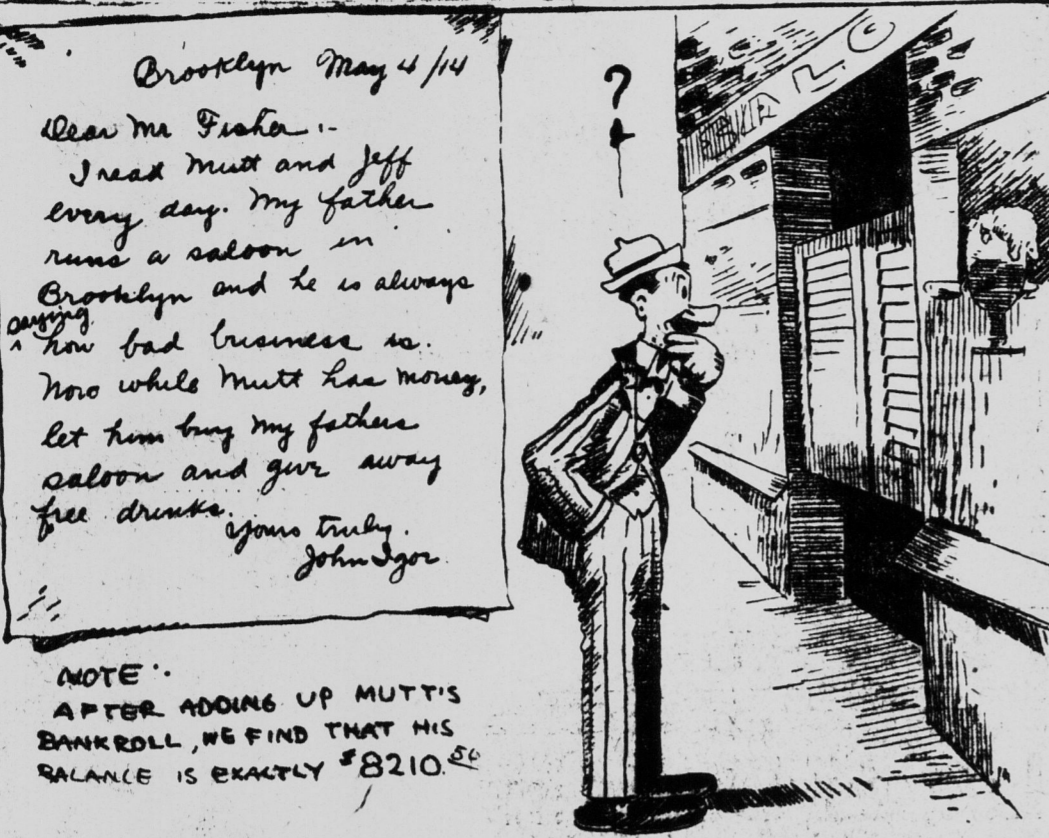 Brooklyn May 4/14
Dear Mr Fisher:-
I read Mutt and Jeff
every day. My father
runs a saloon in
Brooklyn and he is always
saying
^ how bad business is.
Now while Mutt has money,
let him buy my fathers
saloon and give away
free drinks.
Yours truly.
John Igor
?
NOTE:
AFTER ADDING UP MUTT'S
BANKROLL, WE FIND THAT HIS
BALANCE IS EXACTLY $8210.56